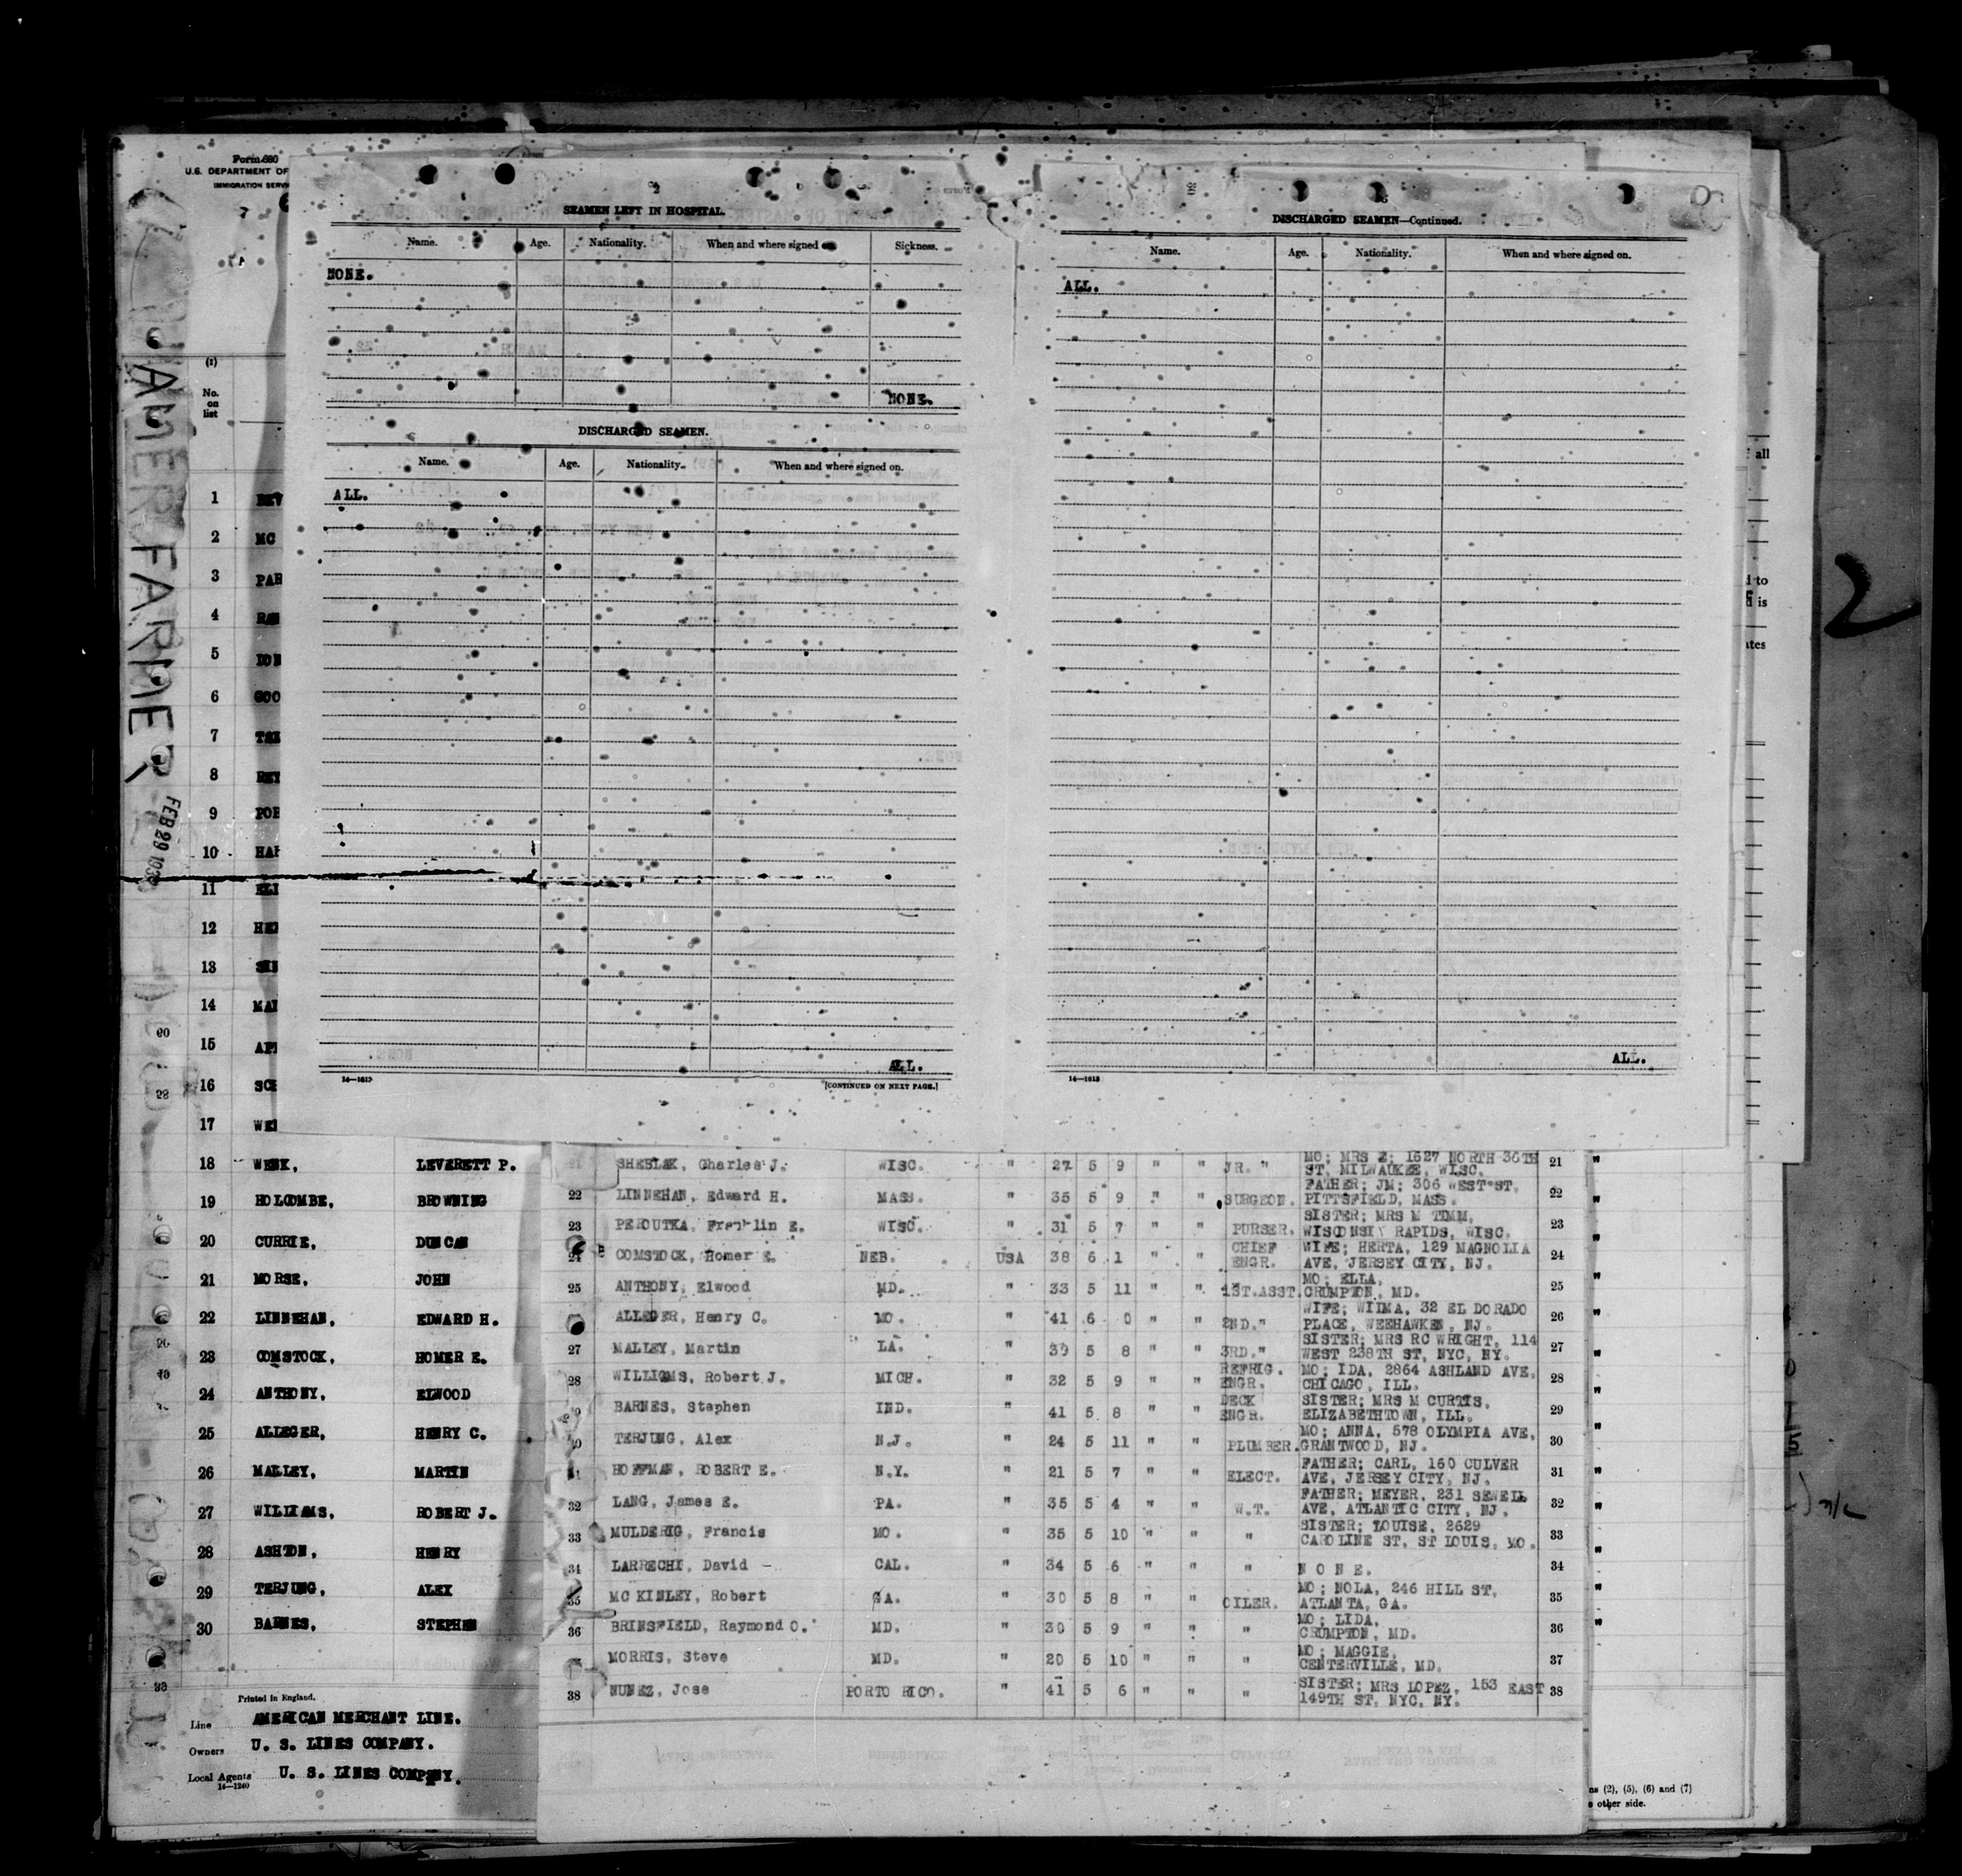 Form 680
U.S. DEPARTMENT OF
IMMIGRATION SERV
AMER FARMER
FEB 29 193
(1)
No.
on
list
1
2 MC
3 PAR
4
5
6 GOO
7
8
9
10
11 ELI
12
13
14
15
16
17
18 WENK, LEVERETT P.
19 HOLCOMBE, BROWNING
20 CURRIE, DUNCAN
21 MORSE, JOHN
22 LINNEHAN, EDWARD H.
23 COMSTOCK, HOMER E.
24 ANTHONY, ELWOOD
25 ALLEGER, HENRY C.
26 MALLEY, MARTIN
27 WILLIAMS, ROBERT J.
28 ASHTON, HENRY
29 TERJUNG, ALEX
30 BARNES, STEPHEN
Printed in England.
Line AMERICAN MERCHANT LINE.
Owners U. S. LINES COMPANY.
Local Agents U. S. LINES COMPANY.
14—1240
SEAMEN LEFT IN HOSPITAL.
Name. Age. Nationality. When and where signed on. Sickness.
NONE.
NONE.
DISCHARGED SEAMEN.
Name. Age. Nationality. When and where signed on.
ALL.
ALL.
14—1613 [CONTINUED ON NEXT PAGE.]
DISCHARGED SEAMEN—Continued.
Name. Age. Nationality. When and where signed on.
ALL.
ALL.
14—1613
SHEBLAK, Charles J. WISC. " 27 5 9 " " JR. " MO; MRS E; 1627 NORTH 36TH ST, MILWAUKEE, WISC. 21 "
22 LINNEHAN, Edward H. MASS. " 35 5 9 " " SURGEON. FATHER; JM; 306 WEST ST, PITTSFIELD, MASS. 22 "
23 PEROUTKA, Franklin E. WISC. " 31 5 7 " " PURSER. SISTER; MRS M TIMM, WISCONSIN RAPIDS, WISC. 23 "
24 COMSTOCK, Homer E. NEB. USA 38 6 1 " " CHIEF ENGR. WIFE; HERTA, 129 MAGNOLIA AVE, JERSEY CITY, NJ. 24 "
25 ANTHONY, Elwood MD. " 33 5 11 " " 1ST.ASST. MO; ELLA, CRUMPTON, MD. 25 "
ALLEGER, Henry C. MO. " 41 6 0 " " 2ND." WIFE; WILMA, 32 EL DORADO PLACE, WEEHAWKEN, NJ. 26 "
27 MALLEY, Martin LA. " 39 5 8 " " 3RD." SISTER; MRS RC WRIGHT, 114 WEST 238TH ST, NYC, NY. 27 "
28 WILLIAMS, Robert J. MICH. " 32 5 9 " " REFRIG. ENGR. MO; IDA, 2864 ASHLAND AVE, CHICAGO, ILL. 28 "
BARNES, Stephen IND. " 41 5 8 " " DECK ENGR. SISTER; MRS M CURTIS, ELIZABETHTOWN, ILL. 29 "
TERJUNG, Alex N.J. " 24 5 11 " " PLUMBER. MO; ANNA, 578 OLYMPIA AVE, GRANTWOOD, NJ. 30 "
HOFFMAN, ROBERT E. N.Y. " 21 5 7 " " ELECT. FATHER; CARL, 160 CULVER AVE, JERSEY CITY, NJ. 31 "
32 LANG, James E. PA. " 35 5 4 " " W.T. FATHER; MEYER, 231 SEWELL AVE, ATLANTIC CITY, NJ. 32 "
33 MULDERIG, Francis MO. " 35 5 10 " " " SISTER; LOUISE, 2629 CAROLINE ST, ST LOUIS, MO. 33 "
34 LARRECHI, David - CAL. " 34 5 6 " " " N O N E. 34 "
35 MC KINLEY, Robert GA. " 30 5 8 " " OILER. MO; NOLA, 246 HILL ST, ATLANTA, GA. 35 "
36 BRINSFIELD, Raymond O. MD. " 30 5 9 " " " MO; LIDA, CRUMPTON, MD. 36 "
MORRIS, Steve MD. " 20 5 10 " " " MO; MAGGIE, CENTERVILLE, MD. 37
38 NUNEZ, Jose PORTO RICO. " 41 5 6 " " " SISTER; MRS LOPEZ, 153 EAST 149TH ST, NYC, NY. 38
all
to
is
2
(2), (5), (6) and (7)
other side.